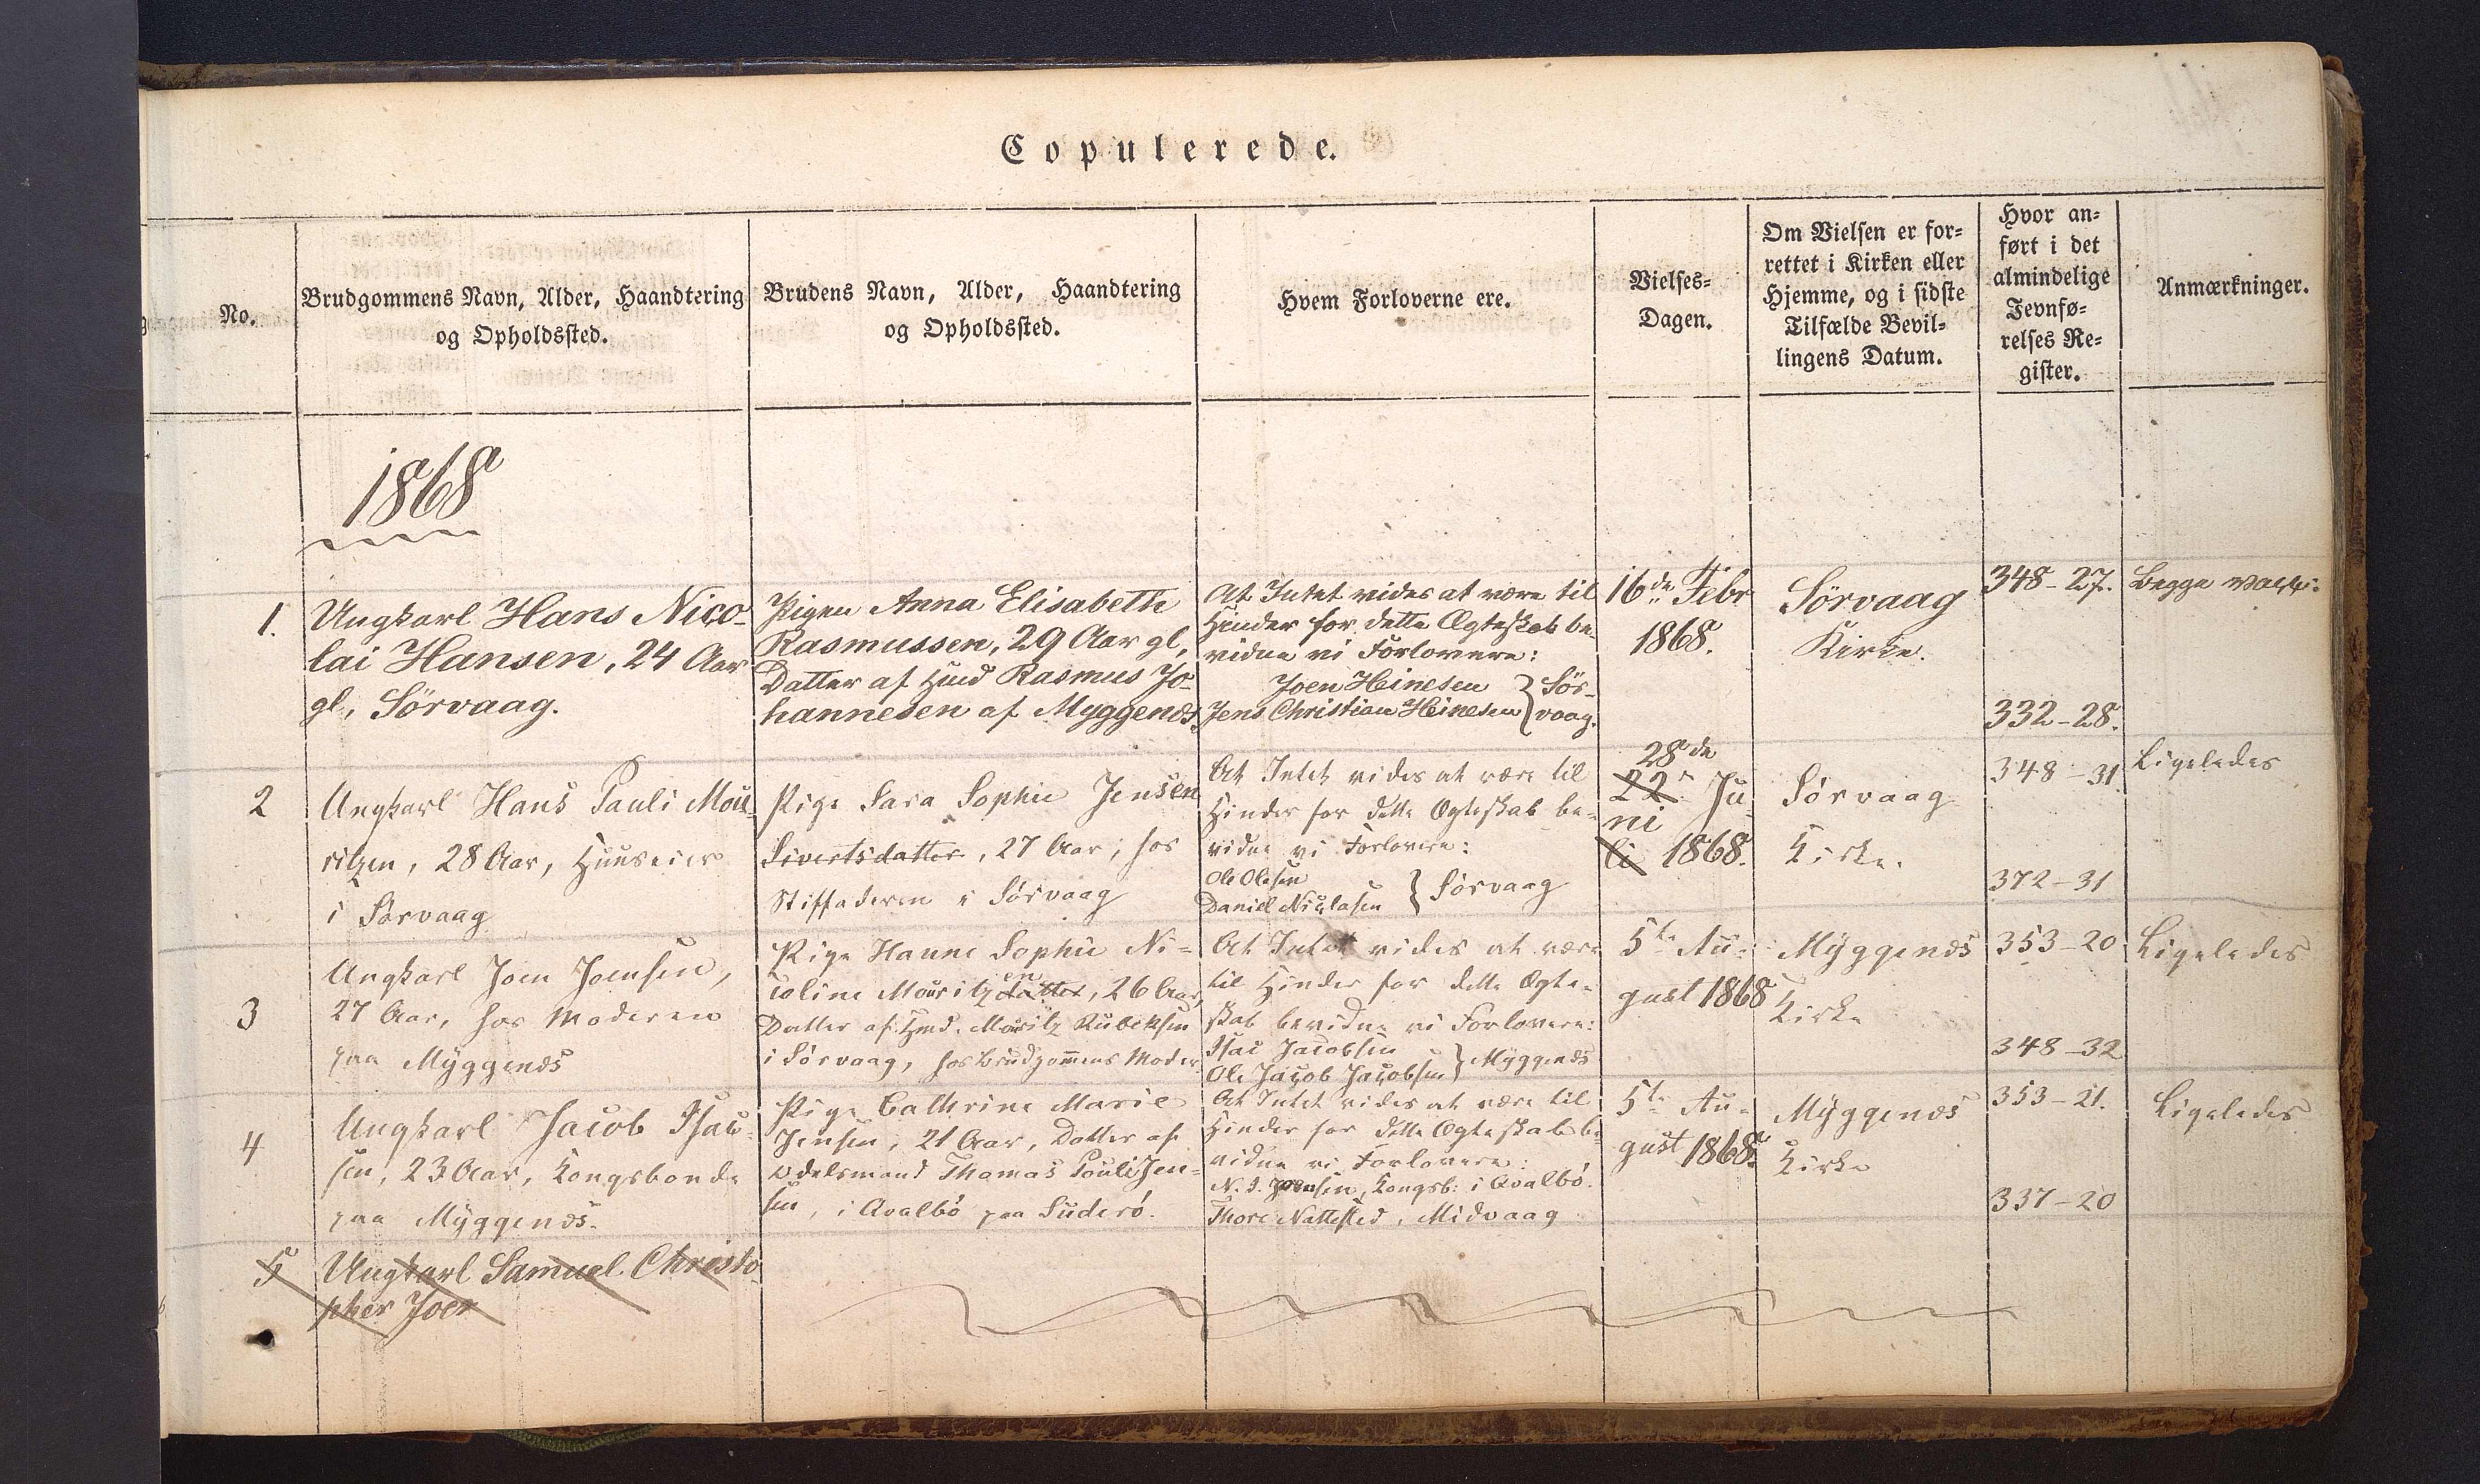 Copulerede.
No.
Brudgommens Navn, Alder, Haandtering
og Opholdssted.
Brudens Navn, Alder, Haandtering
og Opholdssted.
Hvem Forloverne ere.
Vielses-
Dagen.
Om Vielsen er for-
rettet i Kirken eller
Hjemme, og i sidste
Tilfælde Bevil-
lingens Datum.
Hvor an-
ført i det
almindelige
Jevnfø-
relses Re-
gister.
Anmærkninger.
1868
1.
Ungkarl Hans Nico-
lai Hansen, 24 Aar
gl, Sörvaag.
Pigen Anna Elisabeth
Rasmussen, 29 Aar gl,
Datter af Hmd Rasmus Jo-
hannesen af Myggenæs.
At Intet vides at være til
Hinder for dette Ægteskab be-
vidne vi Forlovere:
Joen Heinesen
Jens Christian Heinesen } Sör-
vaag.
16de Febr
1868.
Sörvaag
Kirke.
348-27.
332-28.
Begge vacc:
2
Ungkarl Hans Pauli Mou-
ritzen, 28 Aar, Huuseier
i Sörvaag
Pige Sara Sophie Jensen
Sivertsdatter, 27 Aar, hos
Stiffaderen i Sörvaag
At Intet vides at være til
Hinder for dette Ægteskab be-
vidne vi Forlovere:
Ole Olesen
Daniel Niclasen } Sörvaag
28de
22 Ju
ni
li 1868.
Sörvaag
Kirke.
348-31.
372-31
Ligeledes
3
Ungkarl Joen Joensen,
27 Aar, hos Moderen
paa Myggenæs
Pige Hanne Sophie Ni-
coline Mouritzdatter en, 26 Aar,
Datter af Hmd. Mouritz Rubeksen
i Sörvaag, hos Brudgommens Moder
At Intet vides at være
til Hinder for dette Ægte-
skab bevidne vi Forlovere:
Isac Jacobsen
Ole Jacob Jacobsen } Myggenæs
5te Au-
gust 1868
Myggenæs
Kirke
353-20
348-32
Ligeledes
4
Ungkarl Jacob Isac-
sen, 23 Aar, Kongsbonde
paa Myggenæs.
Pige Cathrine Marie
Jensen, 21 Aar, Datter af
Odelsmand Thomas Pouli Jen-
sen, i Qvalbö paa Suderö.
At Intet vides at være til
Hinder for dette Ægteskab be-
vidne vi Forlovere:
N. J. Joensen, Kongsb: i Qvalbö.
Thore Nattested, Midvaag
5te Au-
gust 1868.
Myggenæs
Kirke
353-21.
337-20
Ligeledes
5
Ungkarl Samuel Christo-
pher Joen